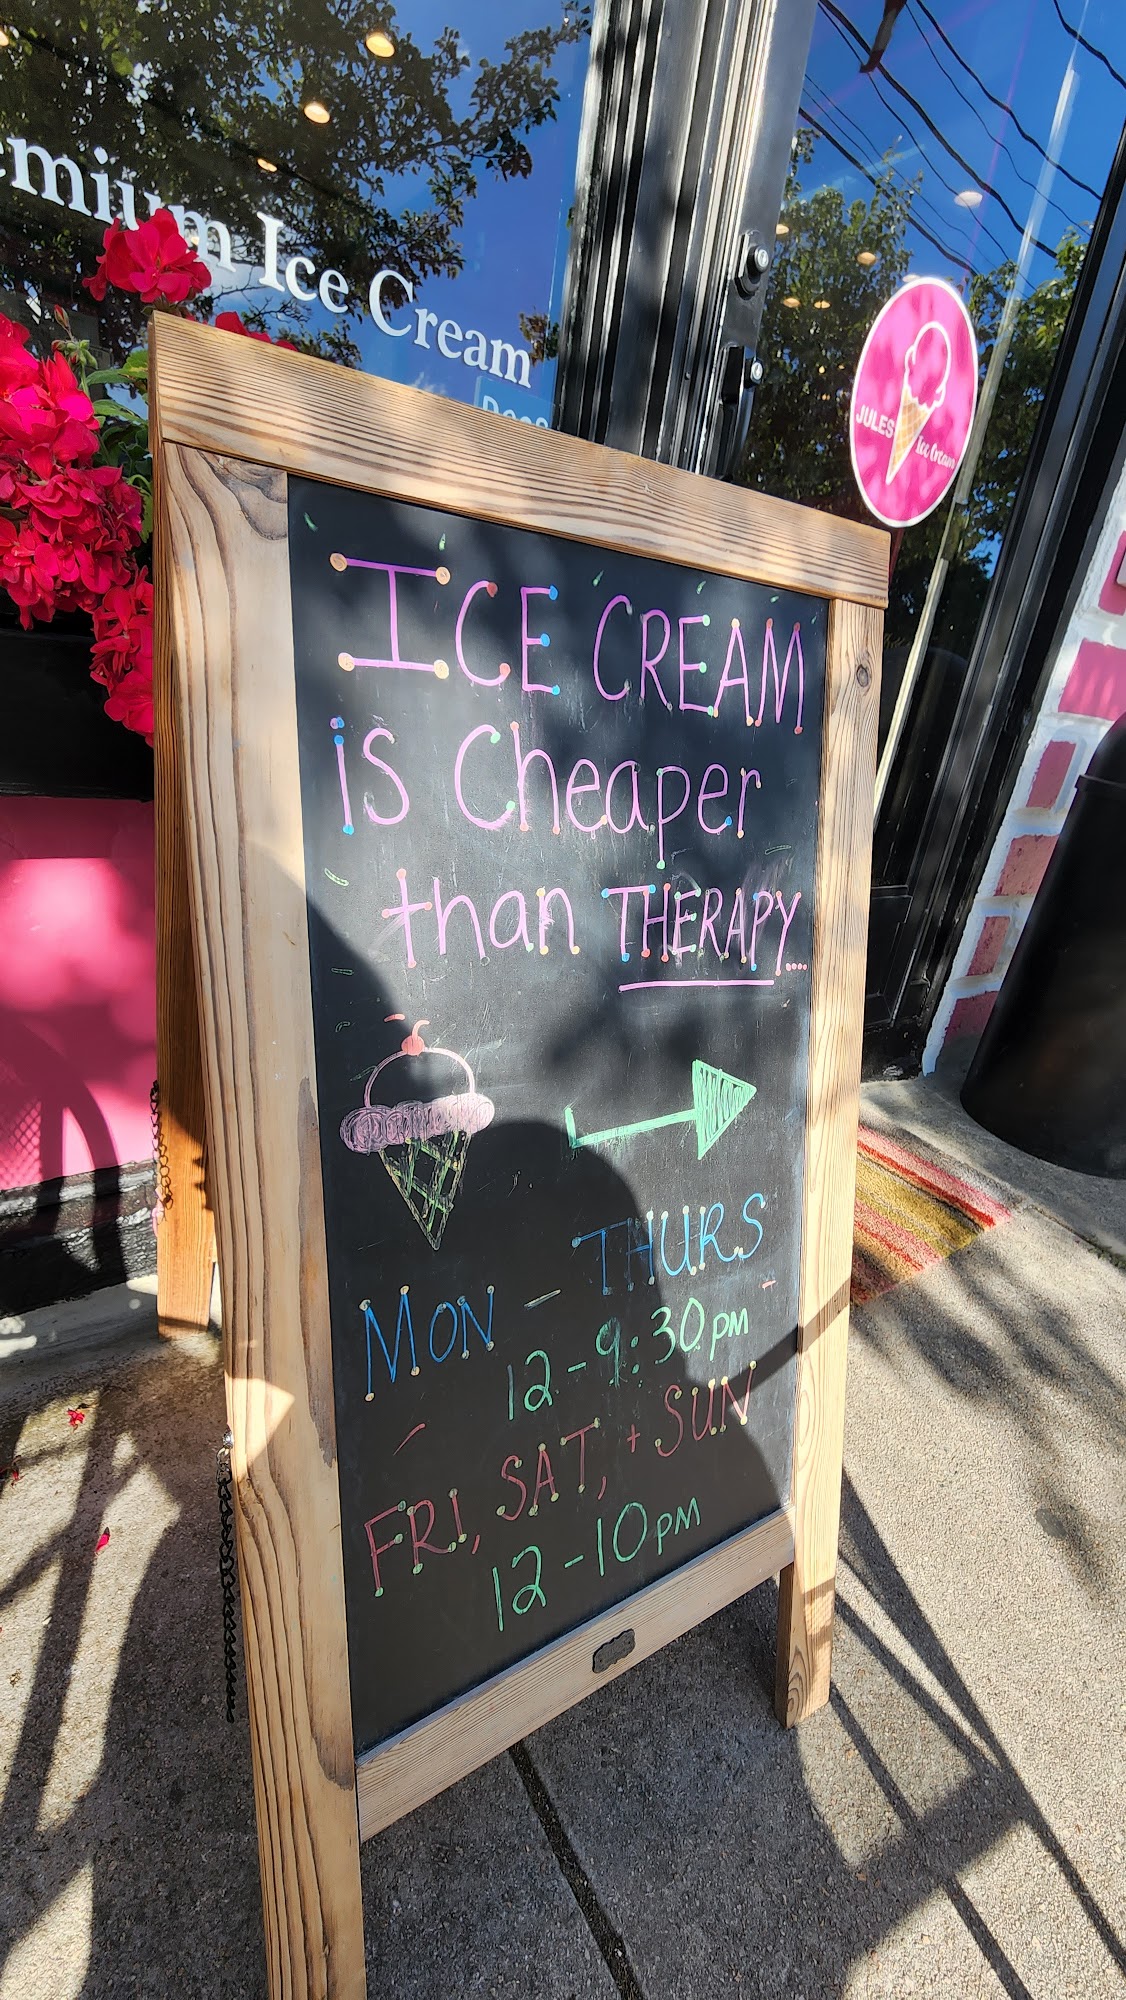 emium Ice Cream
JULES
Ice Cream
ICE CREAM
is Cheaper
than THERAPY...
MON - THURS
12-9:30PM
FRI, SAT, + SUN
12-10PM